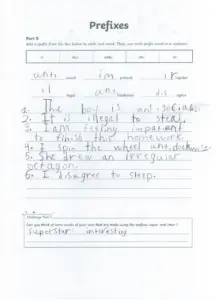 Prefixes
Part B
Add a prefix from the box below to each root word. Then, use each prefix word in a sentence.
anti social im patient ir regular
il legal anti clockwise dis agree
1. The boy is anti-social.
2. It is illegal to steal.
3. I am feeling impatient
to finish this homework.
4. I spin the wheel anticlockwise
5. She drew an irregular
octagon.
6. I disagree to sleep.
Can you think of more words of your own that you make using the prefixes super and inter?
superstar interesting